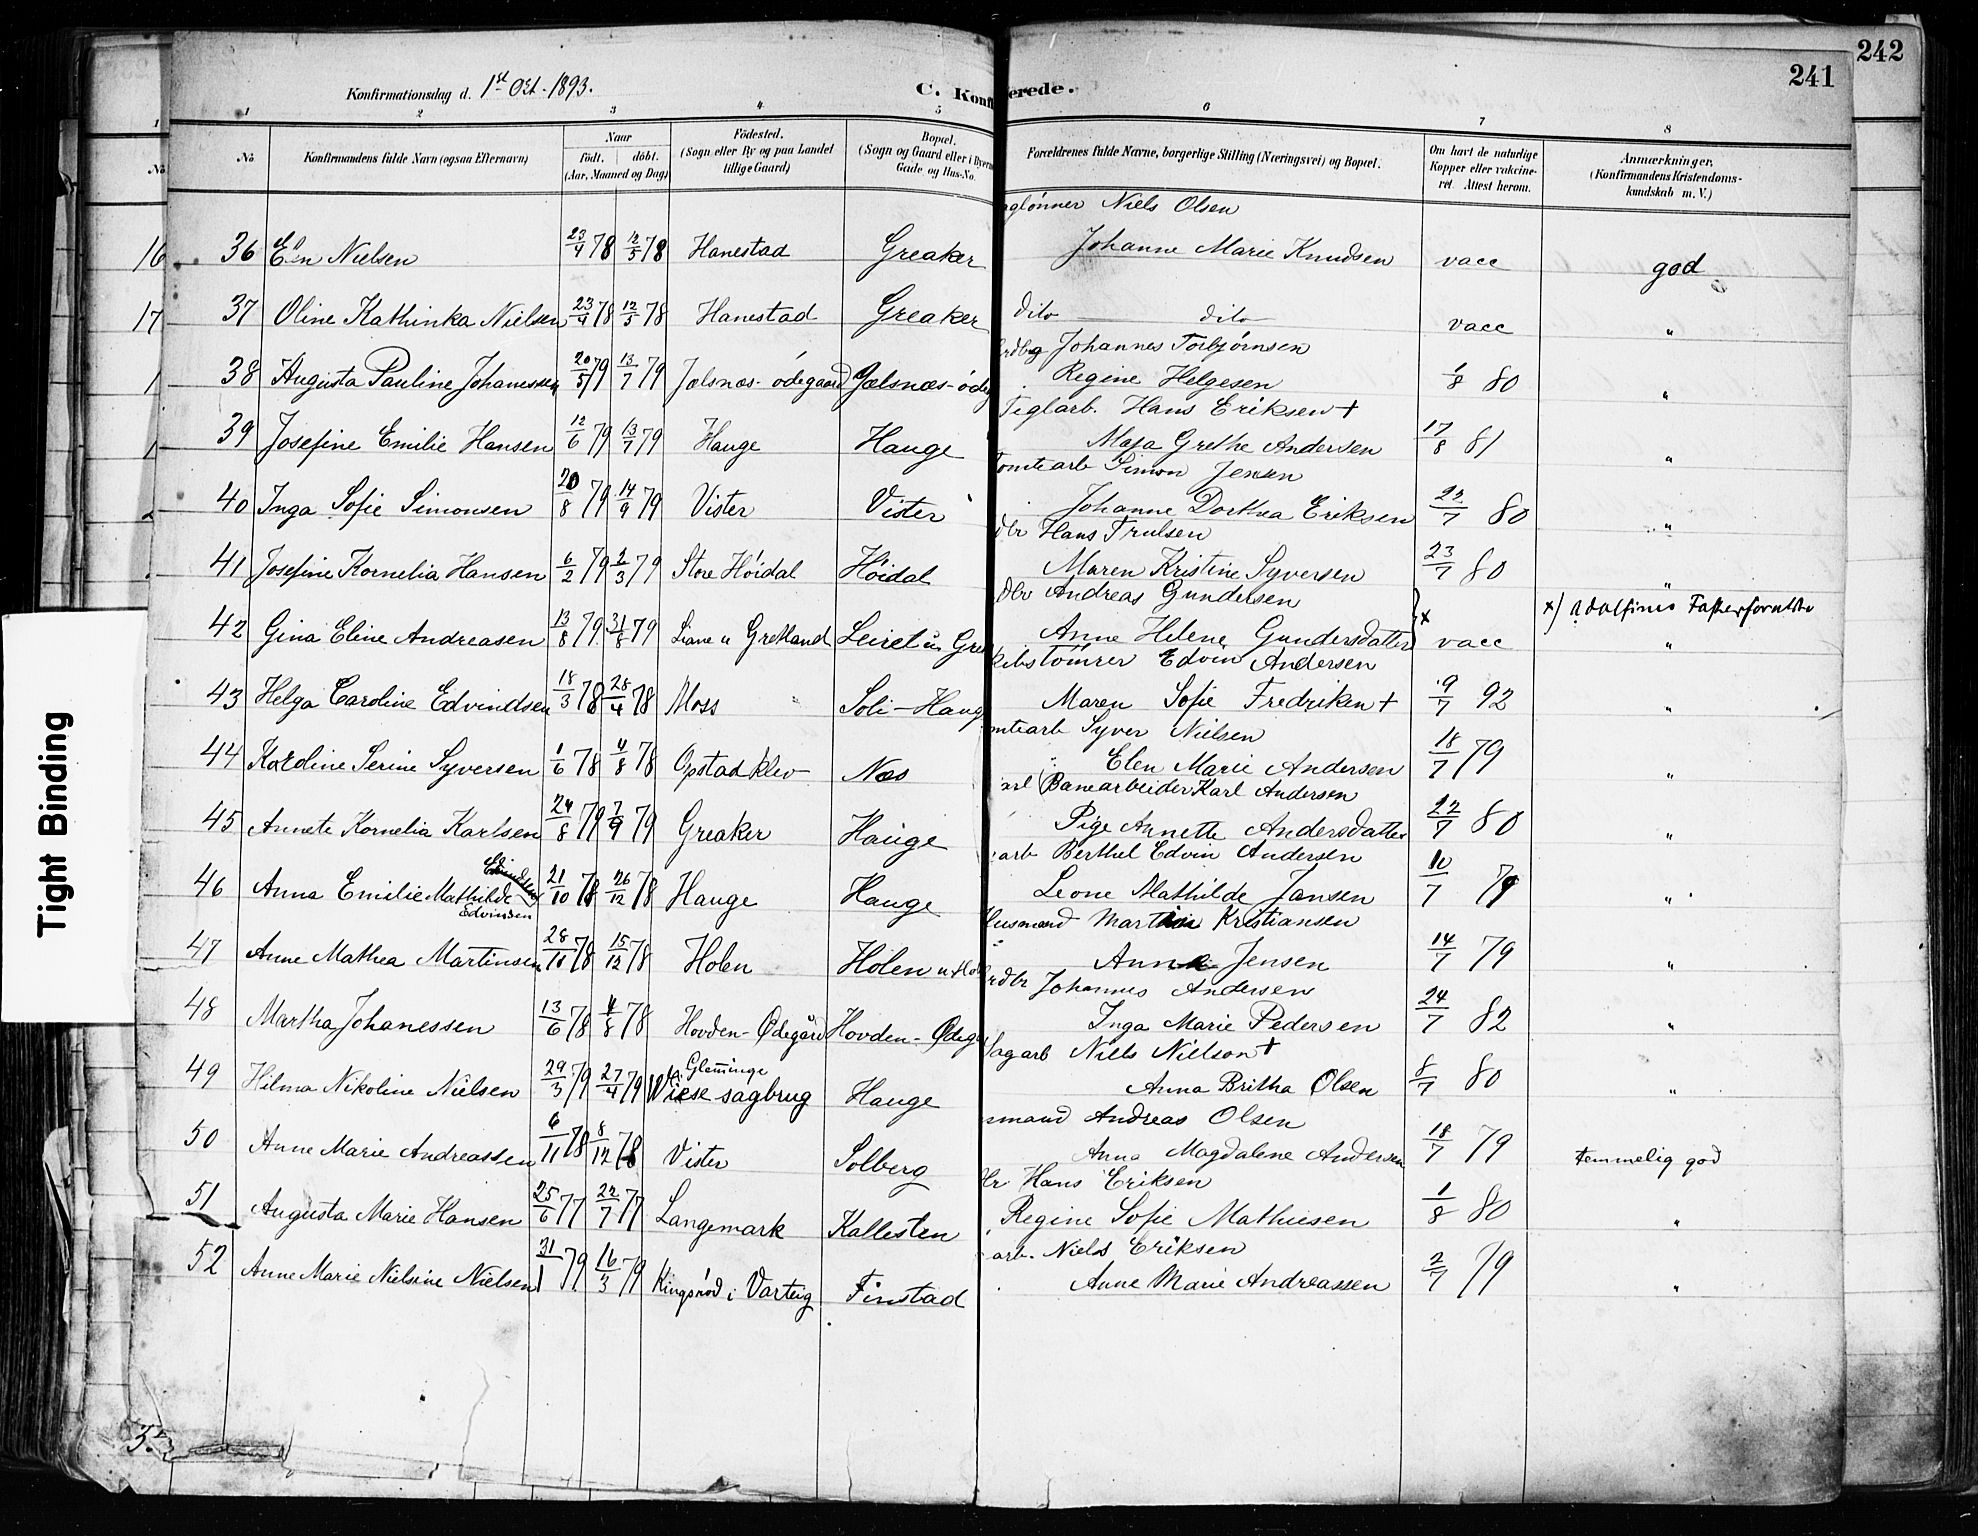 242
241
Konfirmationsdag d. 1st Oct. 1893.
C. Konf erede.
1 2 3 4 5 6 7 8
No
Konfirmandens fulde Navn (ogsaa Efternavn)
Naar
født. døbt.
(Aar, Maaned og Dag)
Fødested.
(Sogn eller By og paa Landet
tillige Gaard)
Bopæl.
(Sogn og Gaard eller i Byern
Gade og Hus-No.
Forældrenes fulde Navne, borgerlige Stilling (Næringsvei) og Bopæl.
Om havt de naturlige
Kopper eller vakcine-
ret. Attest herom.
Anmærkninger,
(Konfirmandens Kristendoms-
kundskab m. V.)
aglønner Niels Olsen
16 36 Nielsen 23/4 78 12/5 78 Hanestad Greaker Johanne Marie Knudsen vacc god
17 37 Oline Kathinka Nielsen 23/4 78 12/5 78 Hanestad Greaker dito dito vacc "
Johannes Torbjørnsen
38 Augusta Pauline Johanessen 20/5 79 13/7 79 Jælsnæs-ödegaard Jælsnæs-öde Regine Helgesen 1/8 80 "
Teglarb. Hans Eriksen +
39 Josefine Emilie Hansen 12/6 79 13/7 79 Hauge Hauge Maja Grethe Andersen 17/8 81 "
Tomtearb Simon Jensen
40 Inga Sofie Simonsen 20/8 79 14/9 79 Vister Vister Johanne Dorthea Eriksen 22/7 80 "
dbr Hans Trulsen
41 Josefine Kornelia Hansen 6/2 79 2/3 79 Store Höidal Höidal Maren Kristine Syversen 23/7 80 "
dbr Andreas Gundersen
42 Gina Eline Andreasen 13/8 79 31/8 79 Liane u Gretland Leiret u. Gre Anne Helene Gundersdatter x vacc "
x)
kibstömrer Edvin Andersen
43 Helga Caroline Edvindsen 18/3 78 28/4 78 Moss Soli-Haug Maren Sofie Fredriksen + 9/7 92 "
mtearb Syver Nielsen
44 Karoline Serine Syversen 1/6 78 4/8 78 Opstadklev Næs Elen Marie Andersen 18/7 79 "
arl Banearbeider Karl Andersen
45 Annete Kornelia Karlsen 24/8 79 7/9 79 Greaker Hauge Pige Annette Andersdatter 22/7 80 "
arb Berthel Edvin Andersen
46 Anna Emilie Mathilde 21/10 78 26/12 78 Hauge Hauge Leone Mathilde Jansen 10/7 79 "
Edvinsen
Husmand Martin Kristiansen
47 Anne Mathea Martinsen 28/11 78 15/12 78 Holen Holen u Ho Anne Jensen 14/7 79 "
rdbr Johannes Andersen
48 Martha Johanessen 13/6 78 4/8 78 Hovden-Ødegård Hovden-Ødeg Inga Marie Pedersen 24/7 82 "
Sagarb Niels Nielson +
49 Hilma Nikoline Nielsen 29/3 79 27/4 79 Glemminge
Wiese sagbrug Hauge Anna Britha Olsen 8/7 80 "
mand Andreas Olsen
50 Anne Marie Andreassen 6/11 78 8/12 78 Vister Solberg Anna Magdalene Andersen 18/7 79 temmelig god
br Hans Eriksen
51 Augusta Marie Hansen 25/6 77 22/7 77 Langemark Kallesten Regine Sofie Mathiesen 1/8 80 "
arb. Niels Eriksen
52 Anne Marie Nielsine Nielsen 31/1 79 16/3 79 Kingsrød i Varteig Finstad Anne Marie Andreassen 2/7 79 "
Tight Binding